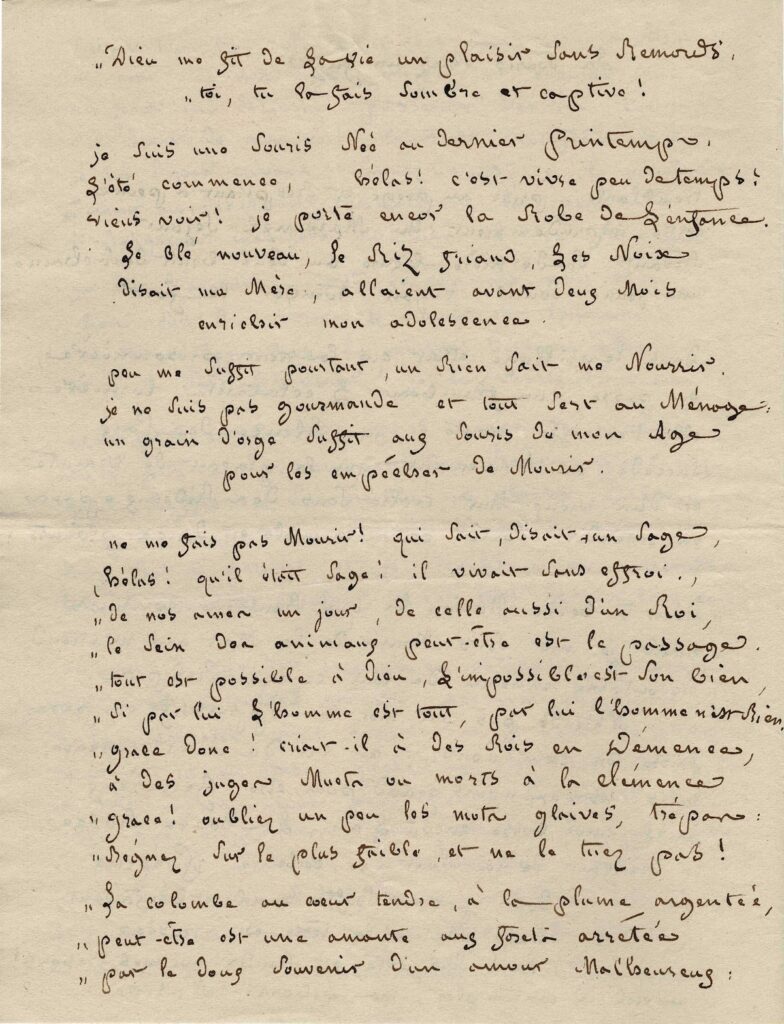 „ Dieu me fit de La vie un plaisir sans Remords.
„ toi, tu la fais sombre et captive !
je suis une souris Née au dernier Printemps.
L'été commence, hélas ! c'est vivre peu de temps !
viens voir ! je porte encor la Robe de L'enfance.
Le blé nouveau, le Riz friand, Les Noix
disait ma Mère, allaient avant deux Mois
enrichir mon adolescence.
peu me suffit pourtant, un Rien sait me Nourrir.
je ne suis pas gourmande et tout sert au Ménage :
un grain d'orge suffit aux souris de mon Age
pour les empêcher de Mourir.
ne me fais pas Mourir ! qui sait, disait un Sage,
hélas ! qu'il était sage ! il vivait sans effroi.,
„ de nos ames un jour, de celle aussi d'un Roi,
„ le sein des animaux peut-être est le passage.
„ tout est possible à Dieu, L'impossible est son bien,
„ si par lui L'homme est tout, par lui l'homme n'est Rien.
„ grace donc ! criait-il à des Rois en Démence,
à des juges Muets ou morts à la clémence
„ grace ! oubliez un peu les mots glaives, trépas :
„ Régnez sur le plus faible, et ne le tuez pas !
„ La colombe au coeur tendre, à la plume argentée,
„ peut-être est une amante aux forêts arrêtée
„ par le doux souvenir d'un amour Malheureux :